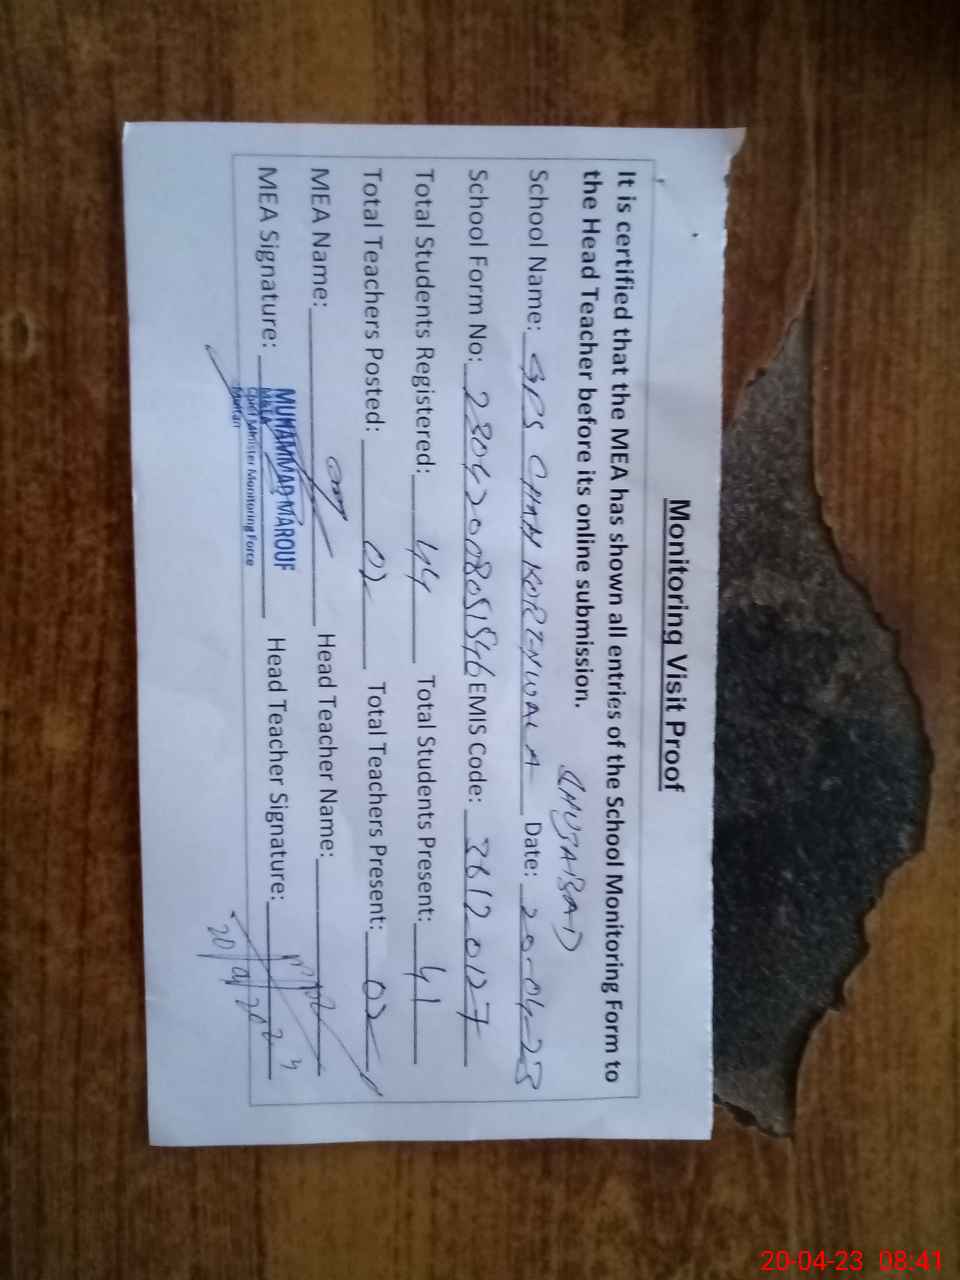 Monitoring Visit Proof
It is certified that the MEA has shown all entries of the School Monitoring Form to
the Head Teacher before its online submission.
SHUJABAD
School Name: GPS CHAH KORTENWALA Date: 20-04-23
School Form No: 23042008051546 EMIS Code: 36120127
Total Students Registered: 44 Total Students Present: 41
Total Teachers Posted: 02 Total Teachers Present: 02
MEA Name: Head Teacher Name:
MEA Signature: Head Teacher Signature:
MUHAMMAD MAROUF
M&EA
Chief Minister Monitoring Force
Multan
20-04-23 08:41